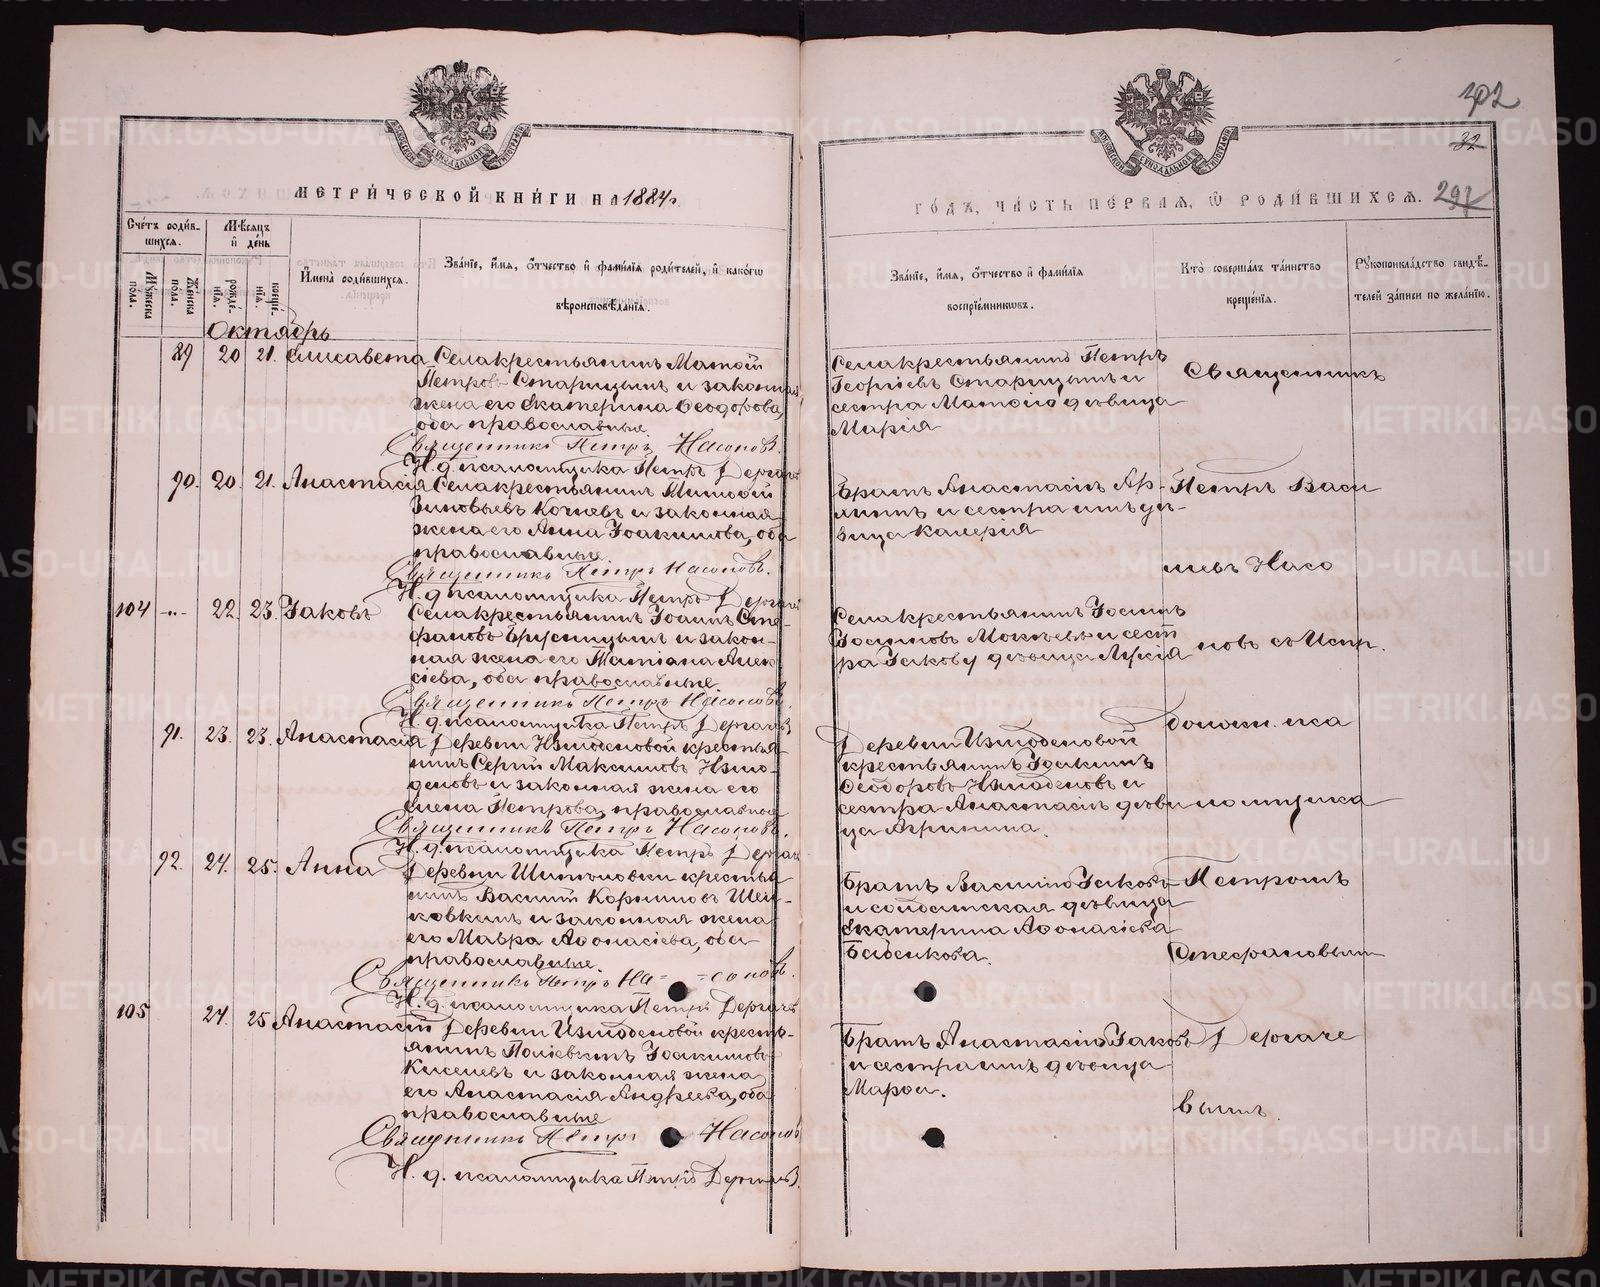 302
32
291
МЕТРИ́ЧЕСКОЙ КНИ́ГИ НА 1884 г.
ГО́ДЪ, ЧА́СТЬ ПЕ́РВАЯ, Ѡ РОДИ́ВШИХСЯ.
Сче́тъ роди́вшихся.
Мѣ́сяцъ и҆ де́нь
Мꙋ́жеска по́ла.
Же́нска по́ла.
рожде́нїя.
креще́нїя.
И҆мена̀ роди́вшихся.
Зва́нїе, и҆́мя, ѻ҆́тчество и҆ фами́лїя роди́телей, и҆ како́гѡ
вѣроисповѣ́данїя.
Зва́нїе, и҆́мя, ѻ҆́тчество и҆ фами́лїя
воспрїе́мниковъ.
Кто̀ соверша́лъ та́инство
креще́нїя.
Рꙋкоприкла́дство свидѣ́телей за́писи по жела́нїю.
Октябрь
89 20 21. Елисавета
Села крестьянинъ Матѳій
Петровъ Старицынъ и законная
жена его Екатерина Ѳеодорова,
оба православные
Священникъ Петръ Насоновъ.
И. д. псаломщика Петръ Дергачевъ
Села крестьянинъ Петръ
Георгіевъ Старицынъ и
сестра Матѳія дѣвица
Марія
Священникъ
90. 20. 21. Анастасія
Села крестьянинъ Тимоѳій
Зиновьевъ Кочневъ и законная
жена его Анна Іоакимова, оба
православные.
Священникъ Петръ Насоновъ.
И. д. псаломщика Петръ Дергачевъ
Братъ Анастасіи
и сестра ихъ дѣ-
вица Калерія
Петръ Васи
льевъ Насо
104 -"- 22. 23. Іаковъ
Села крестьянинъ Іоаннъ Сте-
фановъ Брусницынъ и закон-
ная жена его Татіана Алек-
сіева, оба православные
Священникъ Петръ Насоновъ.
И. д. псаломщика Петръ Дергачевъ
Села крестьянинъ
Мокѣевъ и сест
ра Іакову дѣвица
новъ съ Испр.
91. 23. 23. Анастасія
Деревни Измоденовой крестья
нинъ Сергій Максимовъ Измо-
деновъ и законная жена его
Елена Петрова, православные
Священникъ Петръ Насоновъ.
И. д. псаломщика Петръ Дергачевъ
Деревни Измоденовой
крестьянинъ Іоакимъ
Ѳеодоровъ Измоденовъ и
сестра Анастасіи дѣви
ца Агрипина.
должн. пса
ломщика
92. 24. 25. Анна
Деревни крестья
нинъ Василій Карпиловъ Шей-
и законная жена
его Мавра Аѳонасіева, оба
православные.
Священникъ Петръ На= =соновъ.
И. д. псаломщика Петръ Дергачевъ
Братъ Василія Іаковъ
и дѣвица
Екатерина Аѳонасіева
Бабенкова.
Петромъ
Стефановымъ
105. 24. 25 Анастасій
Деревни Измоденовой кресть-
янинъ Іоакимовъ
Киселевъ и законная жена
его Анастасія Андреева, оба
православные
Священникъ Петръ Насоновъ
И. д. псаломщика Петръ Дергачевъ.
Братъ Анастасія Іаковъ
и сестра ихъ дѣвица
Марѳа.
Дергаче
вымъ.
METRIKI.GASO-URAL.RU